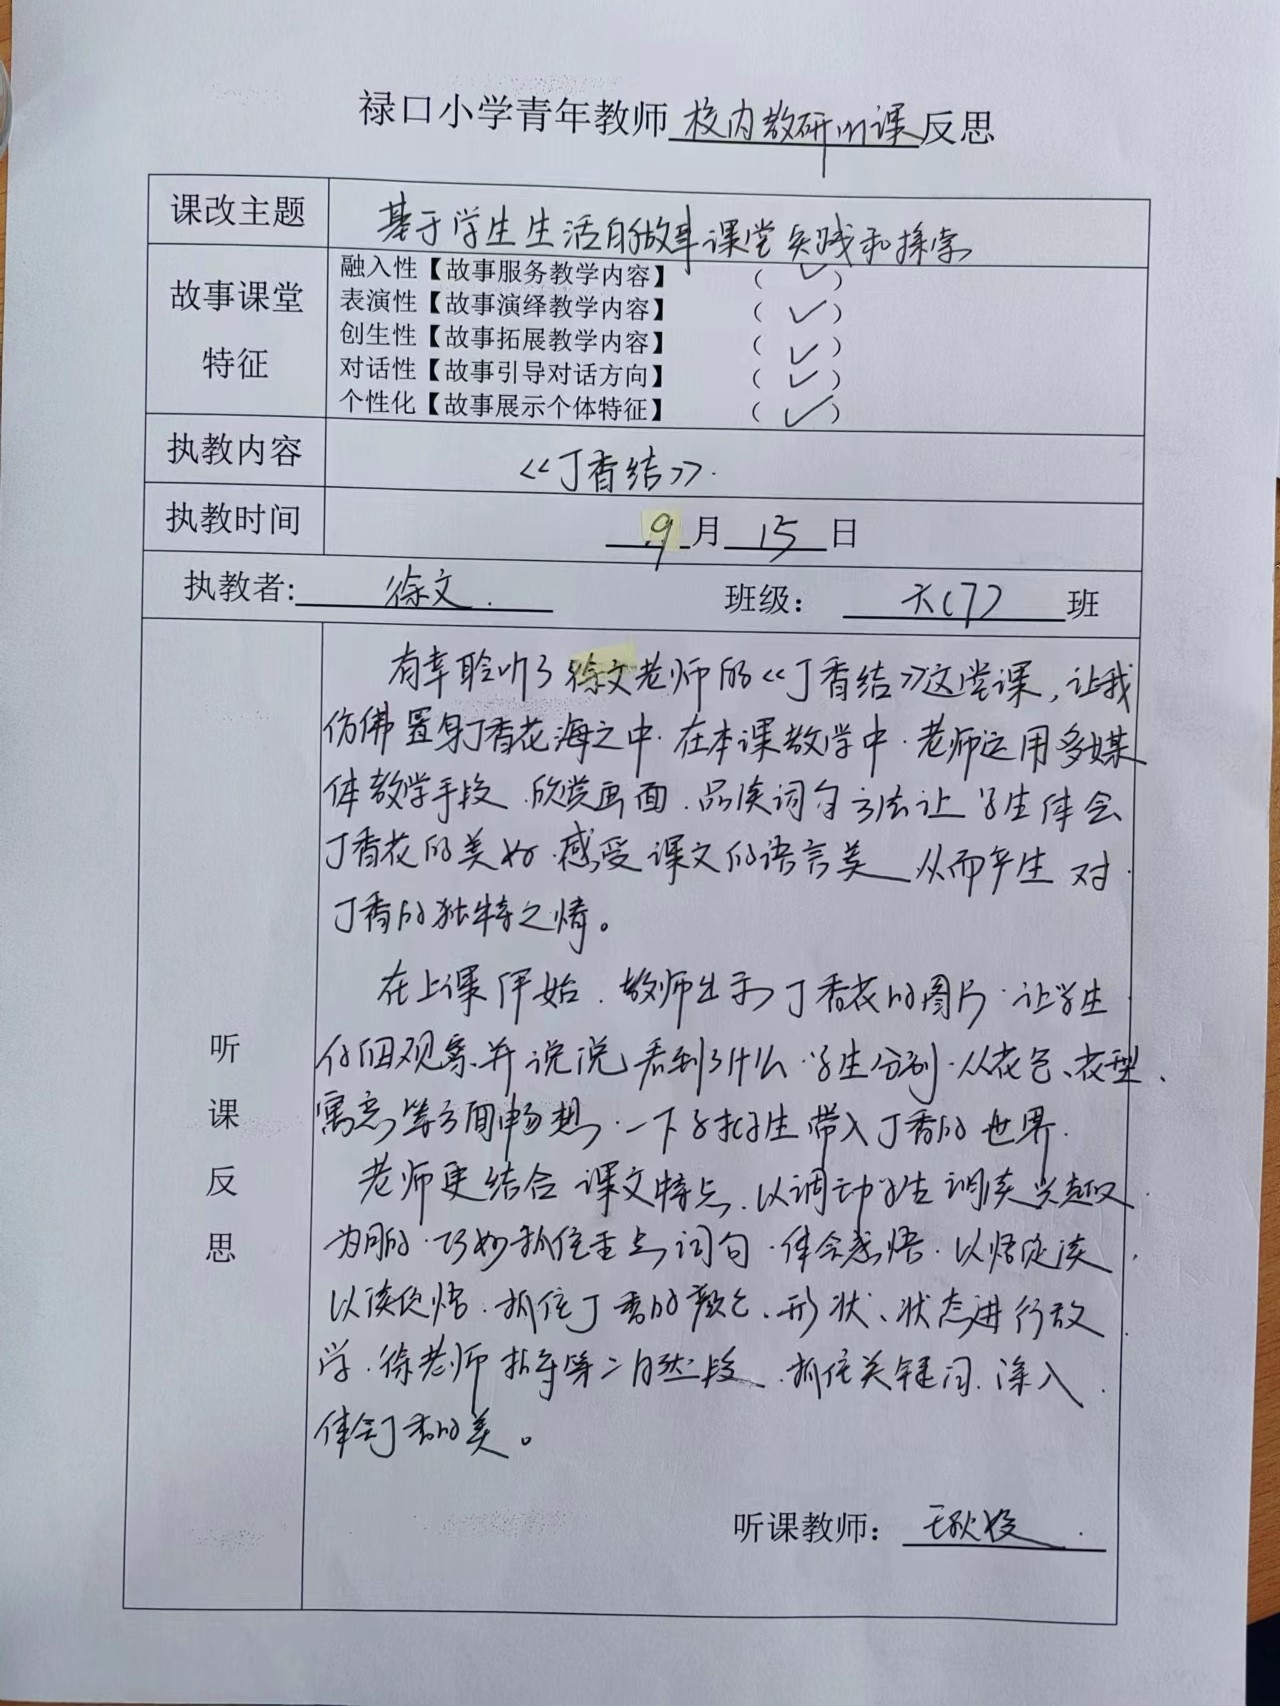 禄口小学青年教师校内教研听课反思
课改主题
基于学生生活的故事课堂实践和探索
故事课堂
特征
融入性【故事服务教学内容】 (✓)
表演性【故事演绎教学内容】 (✓)
创生性【故事拓展教学内容】 (✓)
对话性【故事引导对话方向】 (✓)
个性化【故事展示个体特征】 (✓)
执教内容
《丁香结》.
执教时间
9月15日
执教者: 徐文. 班级: 六(7)班
听课反思
有幸聆听了徐文老师的《丁香结》这堂课,让我
仿佛置身丁香花海之中.在本课教学中.老师运用多媒
体教学手段.欣赏画面.品读词句方法让学生体会
丁香花的美好.感受课文的语言美 从而产生对
丁香的独特之情。
在上课伊始.教师出示丁香花的图片.让学生
仔细观察并说说看到了什么.学生分别.从花色、花型、
寓意等方面畅想.一下子把学生带入丁香的世界.
老师更结合课文特点.以调动学生诵读兴趣
为目的.巧妙抓住重点词句.体会感悟.以悟促读,
以读促悟.抓住丁香的颜色、形状、状态进行教
学.徐老师指导第二自然段.抓住关键词.深入
体会丁香的美。
听课教师: 王秋